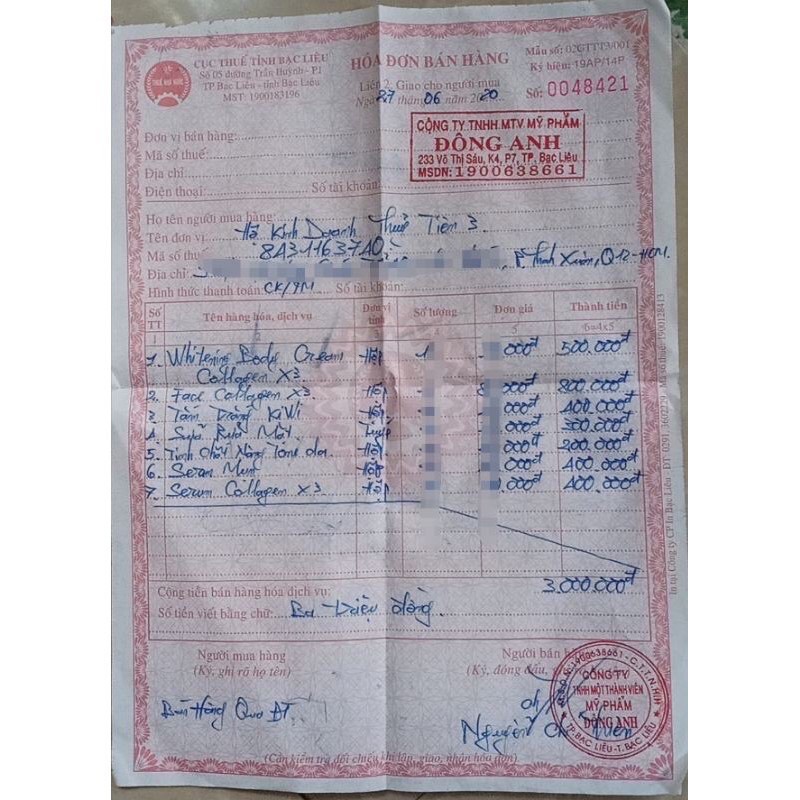 CỤC THUẾ TỈNH BẠC LIÊU
Số 05 đường Trần Huỳnh - P.1
TP Bạc Liêu - tỉnh Bạc Liêu
MST: 1900183196
HÓA ĐƠN BÁN HÀNG
Liên 2: Giao cho người mua
Ngày 27 tháng 06 năm 2020
Mẫu số: 02GTTT3/001
Ký hiệu: 19AP/14P
Số: 0048421
Đơn vị bán hàng:
Mã số thuế:
Địa chỉ:
Điện thoại: Số tài khoản:
CÔNG TY TNHH MTV MỸ PHẨM
ĐÔNG ANH
233 Võ Thị Sáu, K4, P7, TP. Bạc Liêu
MSDN: 1900638661
Họ tên người mua hàng:
Tên đơn vị: Hộ Kinh Doanh Thuỷ Tiên 3
Mã số thuế: 8431163740
Địa chỉ: Thạnh Xuân, Q12-HCM.
Hình thức thanh toán: CK/TM Số tài khoản:
Số TT Tên hàng hóa, dịch vụ Đơn vị tính Số lượng Đơn giá Thành tiền
1 5 6=4x5
1. Whitening Body Cream Collagen X3 Hộp 1 000đ 500.000đ
2. Face Collagen X3 Hộp 000đ 800.000đ
3 Tắm Trắng KiWi Hộp 000đ 400.000đ
4 Sữa Rửa Mặt Tuýp 000đ 300.000đ
5. Tinh Chất Nâng Tone da Hộp 000đ 200.000đ
6. Serum Mụn Hộp 000đ 400.000đ
7. Serum Collagen X3 Hộp 000đ 400.000đ
Cộng tiền bán hàng hóa dịch vụ: 3.000.000đ
Số tiền viết bằng chữ: Ba Triệu đồng.
Người mua hàng
(Ký, ghi rõ họ tên)
Bán Hàng Qua ĐT
Người bán hàng
(Ký, đóng dấu,
Nguyễn
CÔNG TY
TNHH MỘT THÀNH VIÊN
MỸ PHẨM
ĐÔNG ANH
TP. BẠC LIÊU - T. BẠC LIÊU
(Cần kiểm tra đối chiếu khi lập, giao, nhận hóa đơn)
In tại Công ty CP In Bạc Liêu - ĐT: 0291.3602229 - Mã số thuế: 1900128413